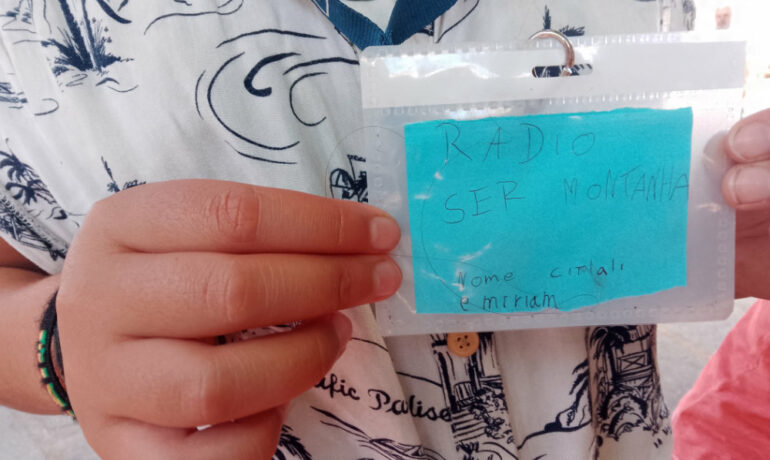 RADIO
SER MONTANHA
Nome Citlali
e miriam
ific Palise